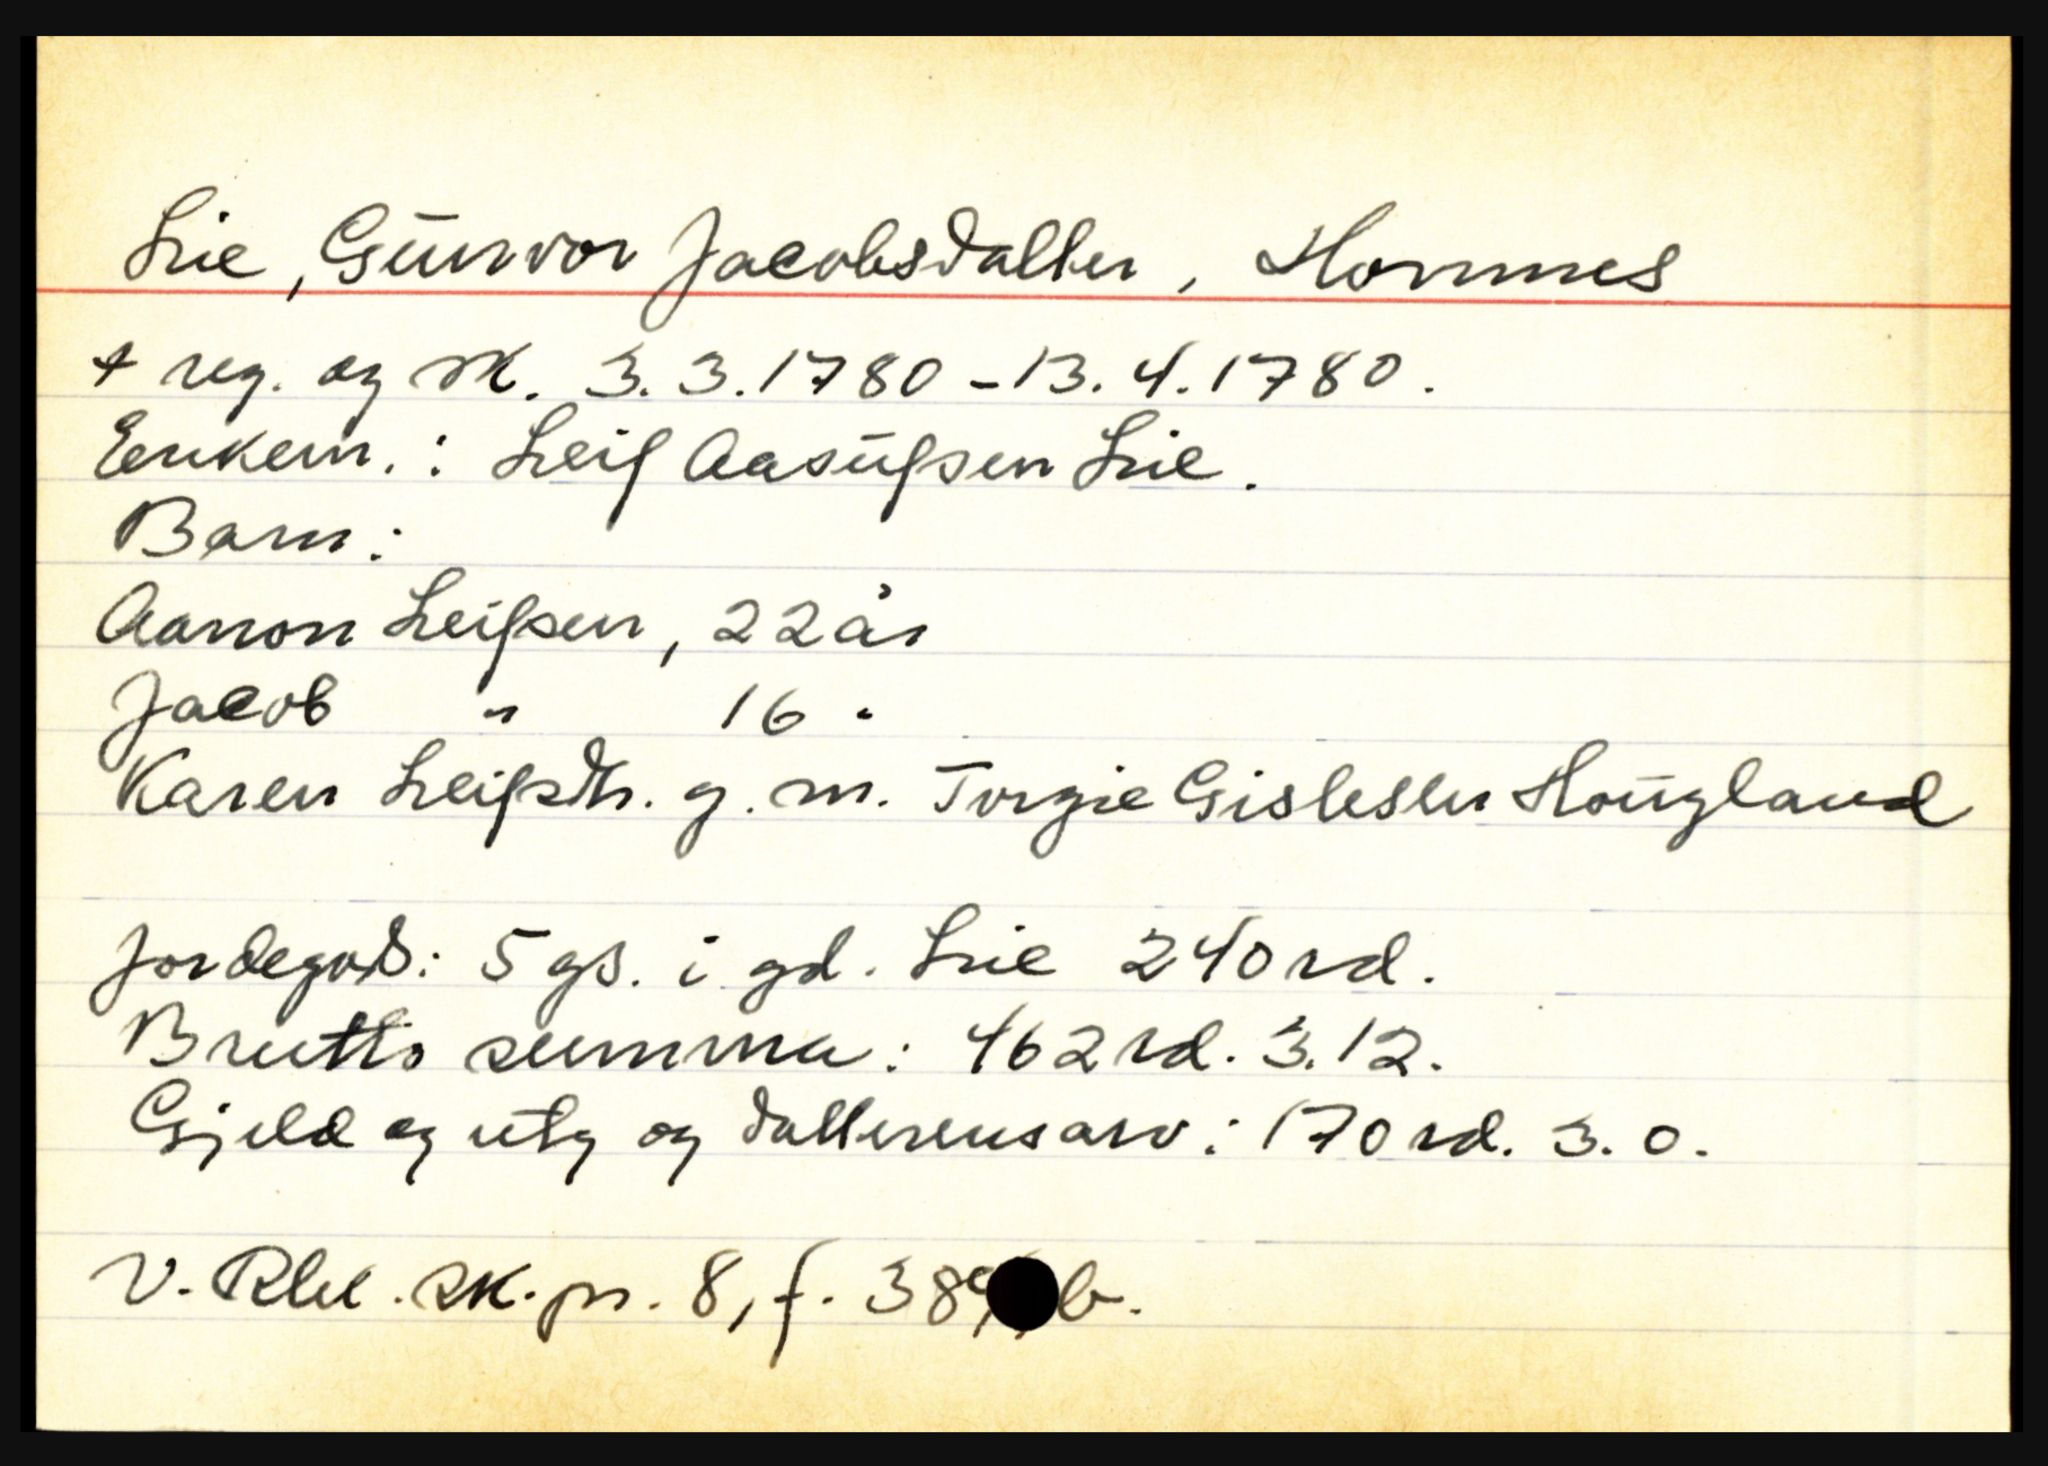 Lie, Gūnvor Jacobsdatter, Hommes
+ reg. og sk. 3.3.1780 - 13.4.1780.
Enkem.: Leif Aasūlfsen Lie.
Barn:
Aanon Leifsen, 22 år
Jacob " 16 "
Karen Leifsdtr. g. m. Torgie Gislesen Hoūgland
Jordegods: 5 gs. i gd. Lie 240 rd.
Brutto summa: 462 rd. 3. 12.
Gjeld og utg og datterens arv: 170 rd. 3. 0.
V. Rbl. sk. pr. 8, f. 389, b.